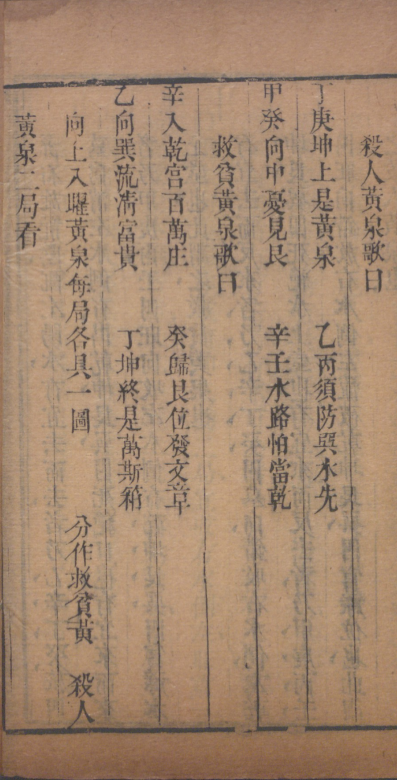 殺人黃泉歌曰
丁庚坤上是黃泉　乙丙須防巽水先
甲癸向中憂見艮　辛壬水路怕當乾
救貧黃泉歌曰
辛入乾宮百萬庄　癸歸艮位發文章
乙向巽流清富貴　丁坤終是萬斯箱
向上八曜黃泉每局各具一圖　分作救貧黃　殺人
黃泉二局看